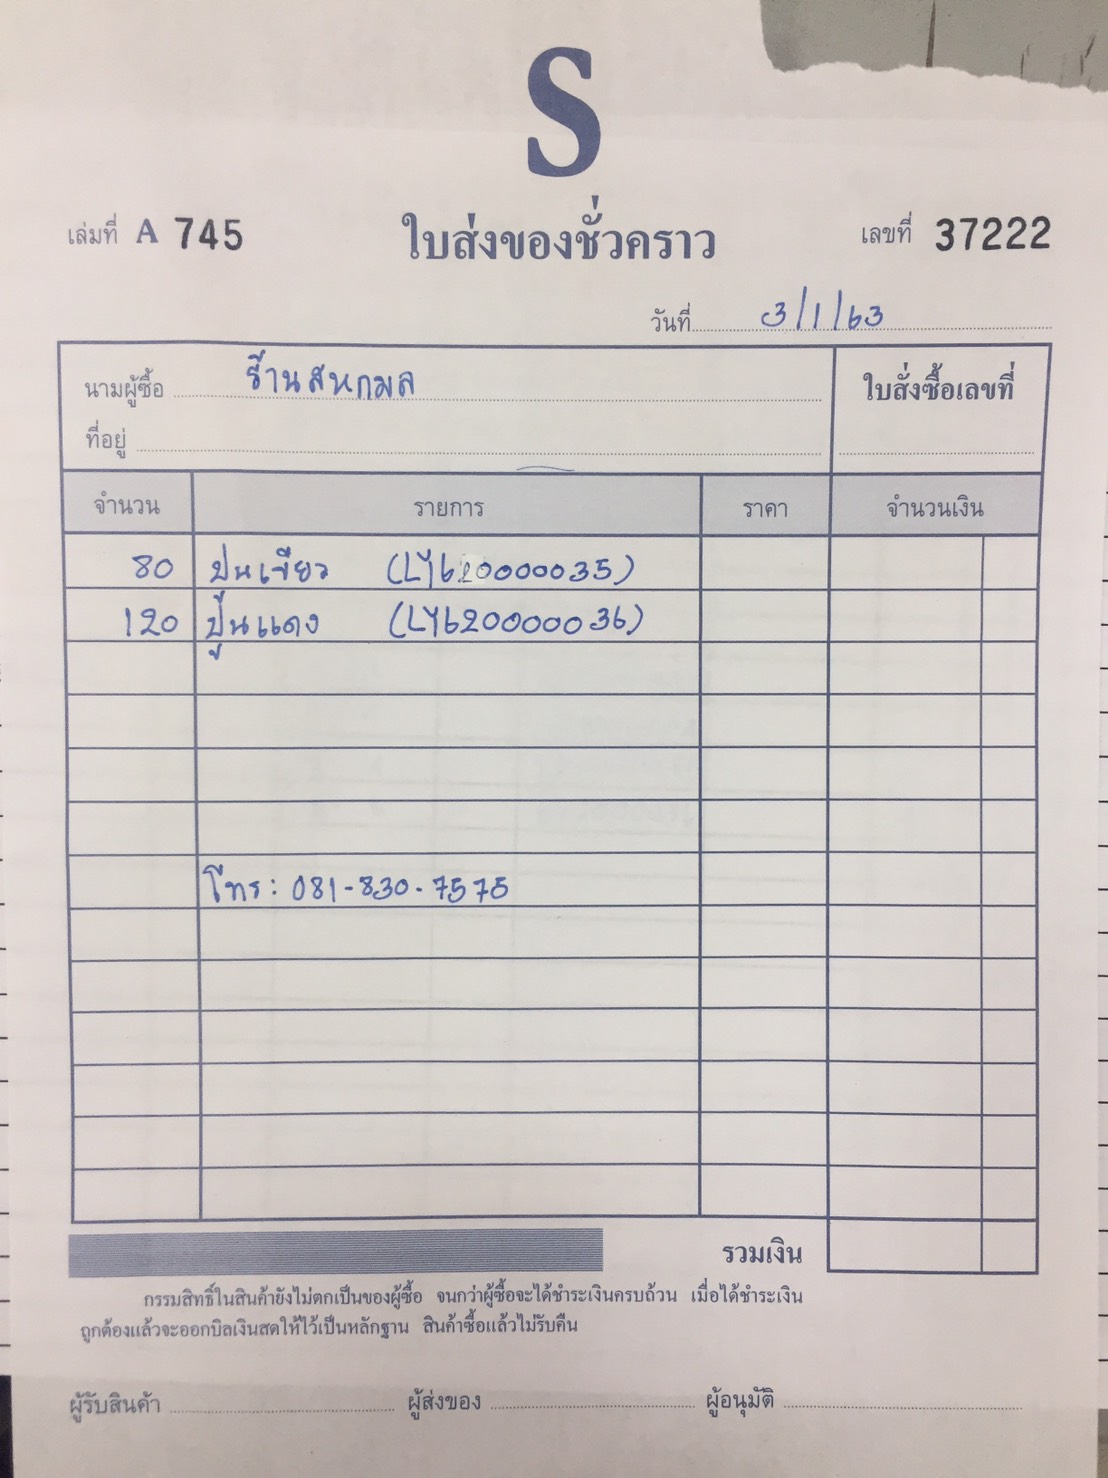 S
เล่มที่ A 745 ใบส่งของชั่วคราว เลขที่ 37222
วันที่ 3/1/63
นามผู้ซื้อ ร้านสหกมล ใบสั่งซื้อเลขที่
ที่อยู่
จำนวน รายการ ราคา จำนวนเงิน
80 ปูนเขียว (LY620000035)
120 ปูนแดง (LY620000036)
โทร: 081-830-7575
รวมเงิน
กรรมสิทธิ์ในสินค้ายังไม่ตกเป็นของผู้ซื้อ จนกว่าผู้ซื้อจะได้ชำระเงินครบถ้วน เมื่อได้ชำระเงิน
ถูกต้องแล้วจะออกบิลเงินสดให้ไว้เป็นหลักฐาน สินค้าซื้อแล้วไม่รับคืน
ผู้รับสินค้า ผู้ส่งของ ผู้อนุมัติ